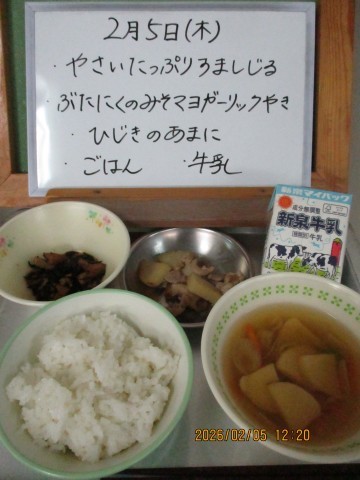 2月5日(木)
・やさいたっぷりろましじる
・ぶたにくのみそマヨガーリックやき
・ひじきのあまに
・ごはん ・牛乳
新泉マイパック
成分無調整
新泉牛乳
牛乳
2026/02/05 12:20